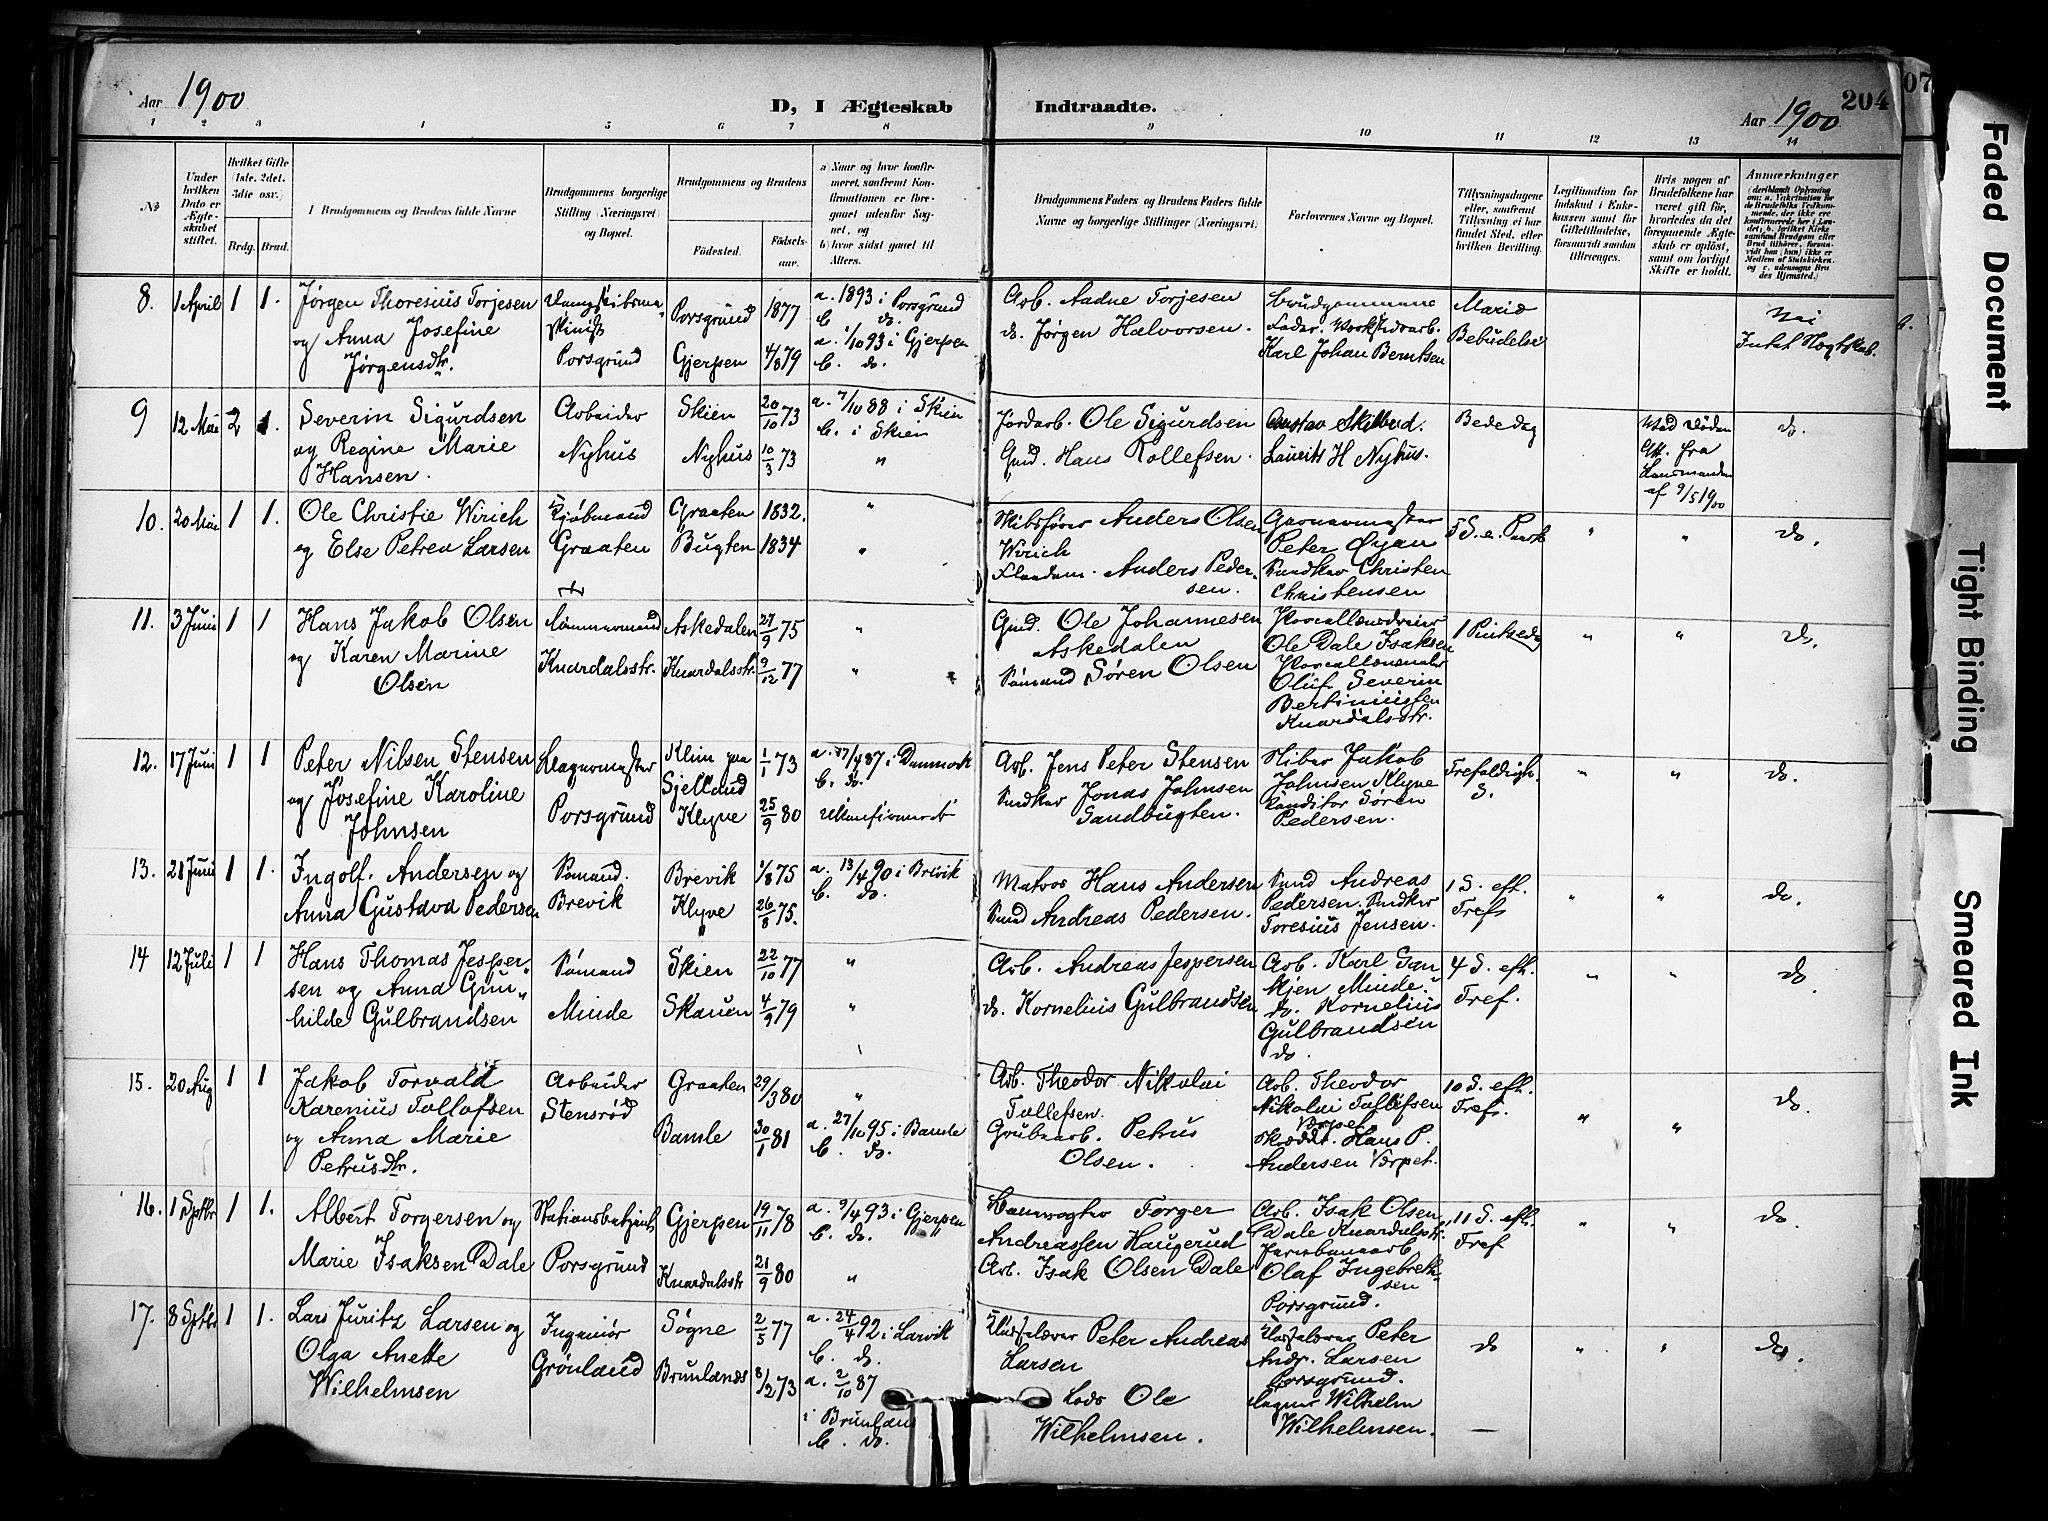 Aar 1900
D, I Ægteskab Indtraadte.
Aar 1900
204
07
1 2 3 4 5 6 7 8 9 10 11 12 13 14
No
Under hvilken Dato er Ægteskabet stiftet.
Hvilket Gifte (1ste, 2det, 3die osv.)
Brdg. Brud.
I Brudgommens og Brudens fulde Navne
Brudgommens borgerlige Stilling (Næringsvei) og Bopæl.
Brudgommens og Brudens
Födested.
Födsels-aar.
a) Naar og hvor konfirmeret, samt om Konfirmationen er foregaaet udenfor Sognet, og
b) hvor sidst gaaet til Alters.
Brudgommens Faders og Brudens Faders fulde Navne og borgerlige Stillinger (Næringsvei)
Forlovernes Navne og Bopæl.
Tillysningsdagene eller, saafremt Tillysning ei har fundet Sted, efter hvilken Bevilling.
Legitimation for Indskud i Enkekassen samt for Giftetilladelse, forsaavidt saadan tiltrænges.
Hvis nogen af Brudefolkene har været gift för, hvorledes da det foregaaende Ægteskab er oplöst, samt om lovligt Skifte er holdt.
Anmærkninger
8. 1 April 1 1. Jørgen Thoresius Torjesen
og Anna Josefine
Jørgensdtr.
Porsgrund
Porsgrund 1877
Gjerpen 4/8 79
a. 1893 i Porsgrund
b. do.
a. 1/10 93 i Gjerpen
b. do.
Arb. Aadne Torjesen
do. Jørgen Halvorsen.
Brudgommens
Fader. Værkstedarb.
Karl Johan Berntsen
Mariæ
Bebudelse
Nei
Intet Slegtskab.
9 12 Mai 2 1. Severin Sigurdsen
og Regine Marie
Hansen.
Arbeider
Nyhus
Skien 20/10 73
Nyhus 10/3 73
a. 7/10 88 i Skien
b. i Skien
"
Jordarb. Ole Sigurdsen
Gmd. Hans Rollefsen.
Gustav Skilbred.
Laurits H Nyhus.
Bededag
Ved Døden
Att. fra
Lensmanden
af 9/5 1900
do.
10. 20 Mai 1 1. Ole Christie Wirich
og Else Petrea Larsen
Kjøbmand
Graaten
Graaten 1832.
Bugten 1834
"
"
Skibsfører Anders Olsen
Wirich
Anders Pedersen.
Peter Øyan
Smedksv Christen
Christensen
5 S. e. Paask
"
"
do.
11. 3 Juni 1 1 Hans Jakob Olsen
og Karen Marine
Olsen
Tømmermand
Knardalsstr.
Askedalen 27/9 75
Knardalsstr. 9/12 77
"
"
Gmd. Ole Johannesen
Askedalen
Sømand Søren Olsen
Porcellænsdreier
Ole Dale Isaksen
Porcellænsmaler
Oluf Severin
Bertiniusten
Knardalsstr.
1 Pintsedag
"
"
do.
12. 17 Juni 1 1 Peter Nilsen Stensen
og Josefine Karoline
Johnsen
Porsgrund
Klim paa
Sjelland 1/1 73
Klyve 25/9 80
a. 17/4 87 i Danmark
b. do.
ukonfirmeret
Arb. Jens Peter Stensen
Smdksv Jonas Johnsen
Sandbugten.
Skibsr Jakob
Johnsen Klyve
Konditor Søren
Pedersen.
Trefoldigh.
S.
"
"
do.
13. 21 Juni 1 1. Ingolf. Andersen og
Anna Gustava Pedersen
Sømand.
Brevik
Brevik 1/8 75
Klyve 26/8 75.
a. 13/4 90 i Brevik
b. do.
Matros Hans Andersen
Smed Andreas Pedersen.
Smed Andreas
Pedersen. Smedksv
Toresius Jensen.
1 S. eft.
Tref.
"
"
do.
14 12 Juli 1 1 Hans Thomas Jesper-
sen og Anna Gun-
hilde Gulbrandsen
Sømand
Minde
Skien 22/10 77
Skauen 4/9 79
"
"
Arb. Andreas Jespersen
do. Kornelius Gulbrandsen
Arb. Karl Gan-
kjen Minde.
do. Kornelius
Gulbrandsen
do.
4 S. eft.
Tref.
"
"
do.
15. 20 Aug 1 1 Jakob Torvald
Karenius Tollefsen
og Anna Marie
Petrusdtr.
Arbeider
Stensrød
Graaten 29/3 80
Bamle 30/1 81
"
a. 27/10 95 i Bamle
b. do.
Arb. Theodor Nikolai
Tollefsen.
Grubearb. Petrus
Olsen.
Arb. Theodor
Nikolai Tollefsen
Vørpet
Skrædd. Hans P.
Andersen Vørpet.
10 S. eft.
Tref.
"
"
do.
16. 1 Sptbr 1 1. Albert Torgersen og
Marie Isaksen Dale
Stationsbetjent
Porsgrund
Gjerpen 19/11 78
Knardalsstr 21/9 80
a. 9/4 93 i Gjerpen
b. do.
"
Banevogter Torger
Andreassen Haugerud
Arb. Isak Olsen Dale
Arb. Isak Olsen
Dale Knardalsstr.
Jernbanearb
Olaf Ingebreth-
sen
Porsgrund.
11 S. eft.
Tref
"
"
do.
17. 8 Sptbr 1 1. Lars Juritz Larsen og
Olga Anette
Wilhelmsen
Ingeniør
Grønland
Søgne 2/5 77
Brunlanes 8/2 73
a. 24/4 92 i Larvik
b. do.
a. 2/10 87
i Brunlanes
b. do.
Peter Andreas
Larsen
Lods Ole
Wilhelmsen.
Peter
Andr. Larsen
Porsgrund.
Wilhelm
Wilhelmsen.
do
"
"
do.
Faded Document
Tight Binding
Smeared Ink